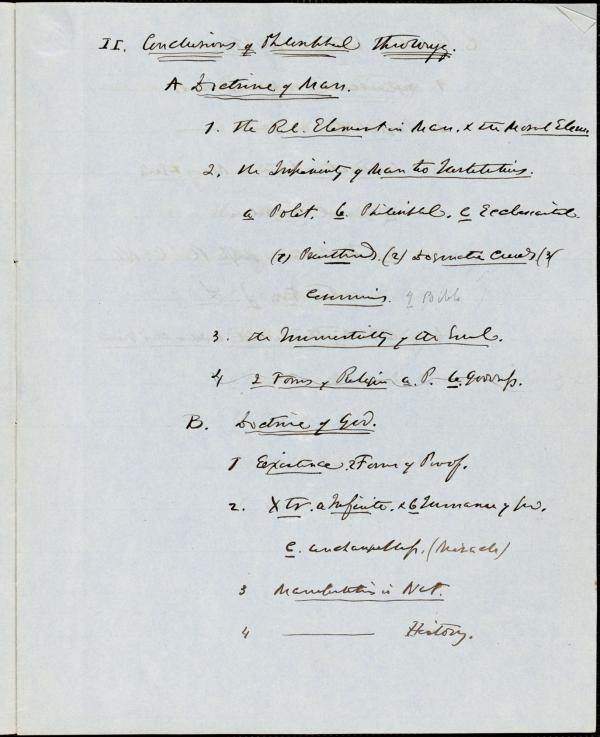 II. Conclusions of Philosophical Theology.
A Doctrine of Man.
1. the Rel. Element in Man, & the Moral Elem
2. the Superiority of Man to Institutions.
a Polit. b. Philosophl. c Ecclesiastical
(1) Priesthood. (2) Dogmatic Creeds (3)
Ceremonies. 4 Bible
3. the Immortality of the Soul.
4 2 Forms of Religion a. P. b. Goodness.
B. Doctrine of God.
1 Existence. 2 Forms of Proof.
2. Xtr. a Infinite. & b Immanence of
c. unchangeableness. (Miracle)
3 Manifestation in Nat.
4 ——— History.